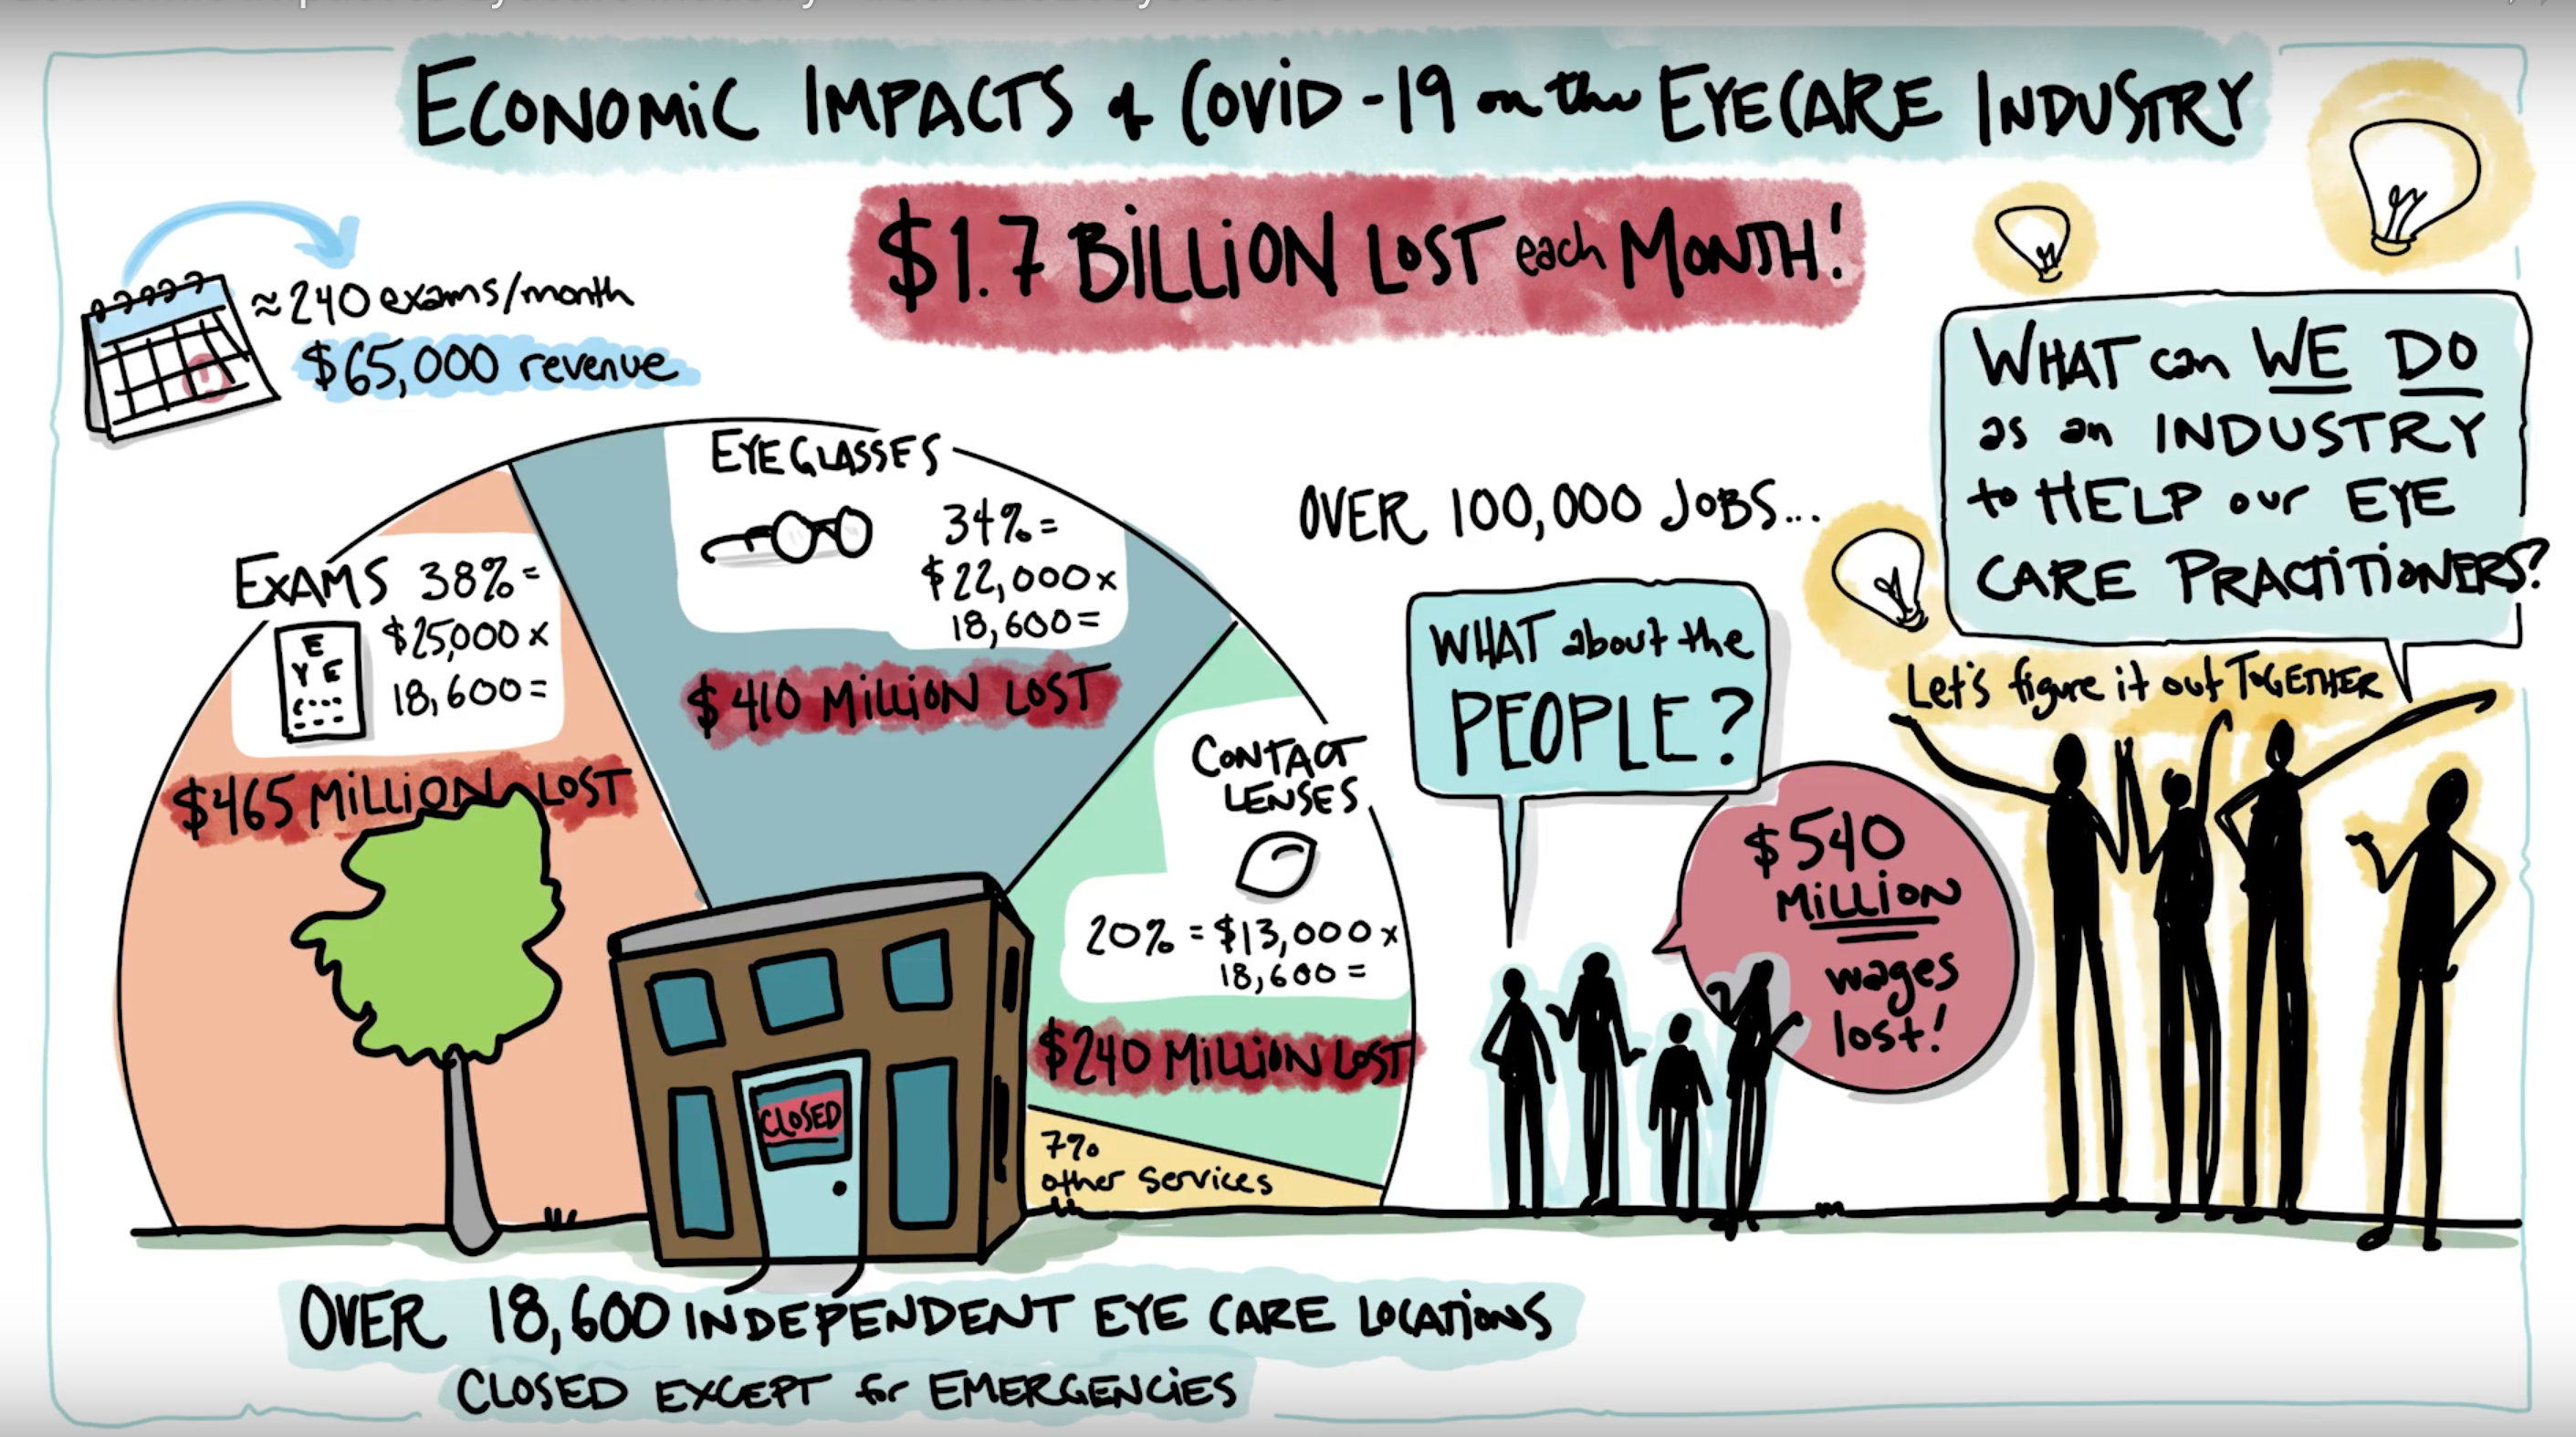 ECONOMIC IMPACTS of COVID-19 on the EYECARE INDUSTRY
$1.7 BILLION LOST each MONTH!
≈240 exams/month
$65,000 revenue
EXAMS 38% =
$25,000 x
18,600 =
E
Y E
$465 MILLION LOST
EYEGLASSES
34% =
$22,000 x
18,600 =
$410 MILLION LOST
CONTACT
LENSES
20% = $13,000 x
18,600 =
$240 MILLION LOST
7%
other services
CLOSED
OVER 18,600 INDEPENDENT EYE CARE LOCATIONS
CLOSED EXCEPT for EMERGENCIES
OVER 100,000 JOBS...
WHAT about the
PEOPLE?
$540
MILLION
wages
lost!
WHAT can WE DO
as an INDUSTRY
to HELP our EYE
CARE PRACTITIONERS?
Let's figure it out TOGETHER